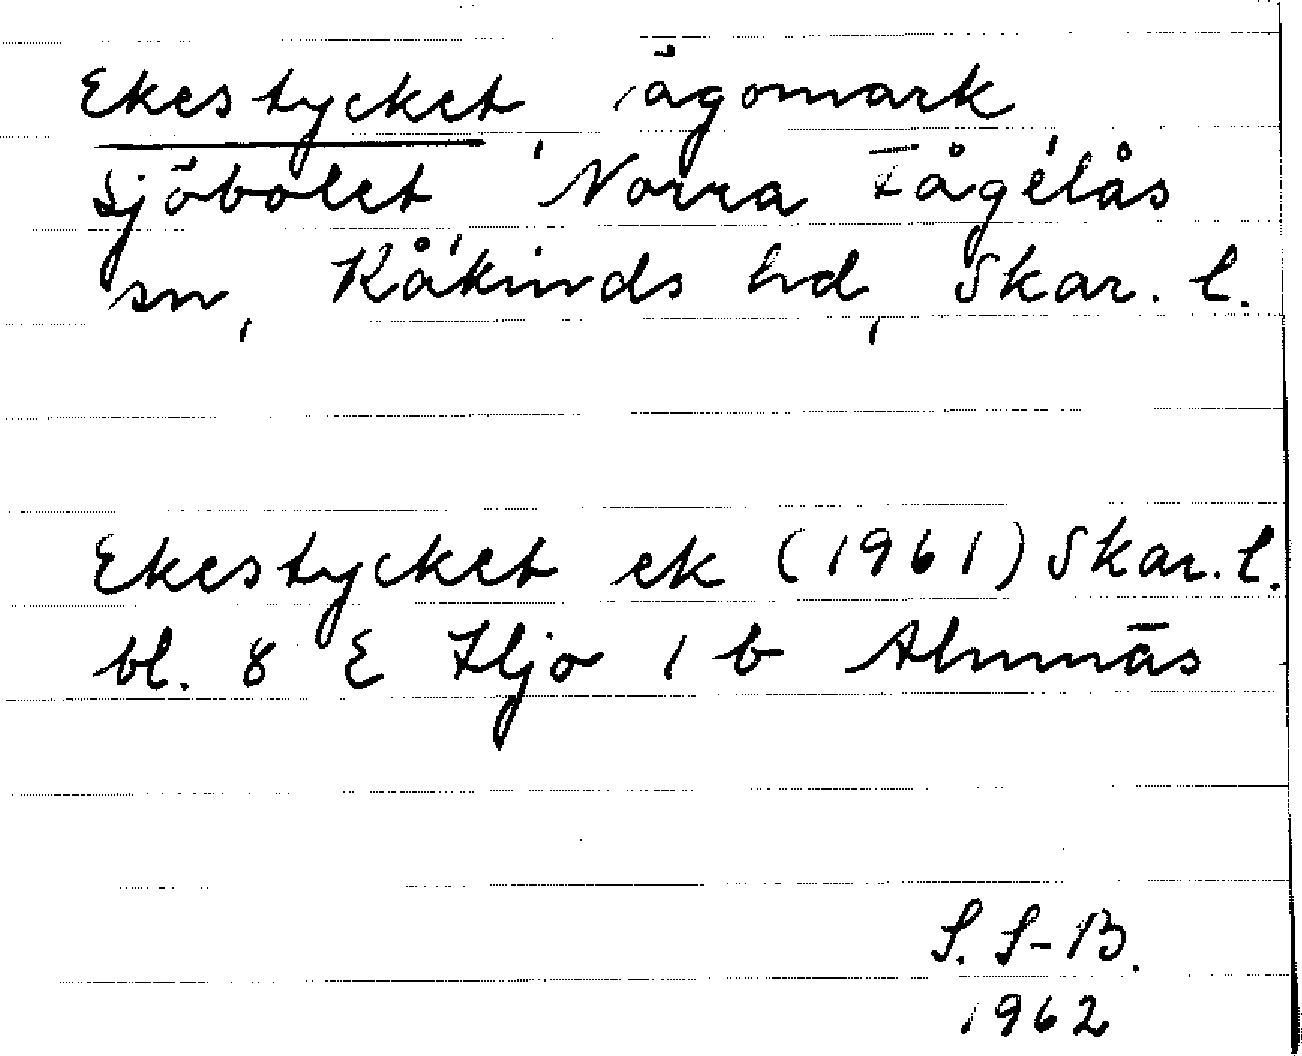 Ekestycket, ägomark
Sjöbolet, Norra Fågelås
sn, Kåkinds hd, Skar. l.
Ekestycket ek (1961) Skar. l.
bl. 8 E Hjo 1 b Almnäs
S. S-B.
1962